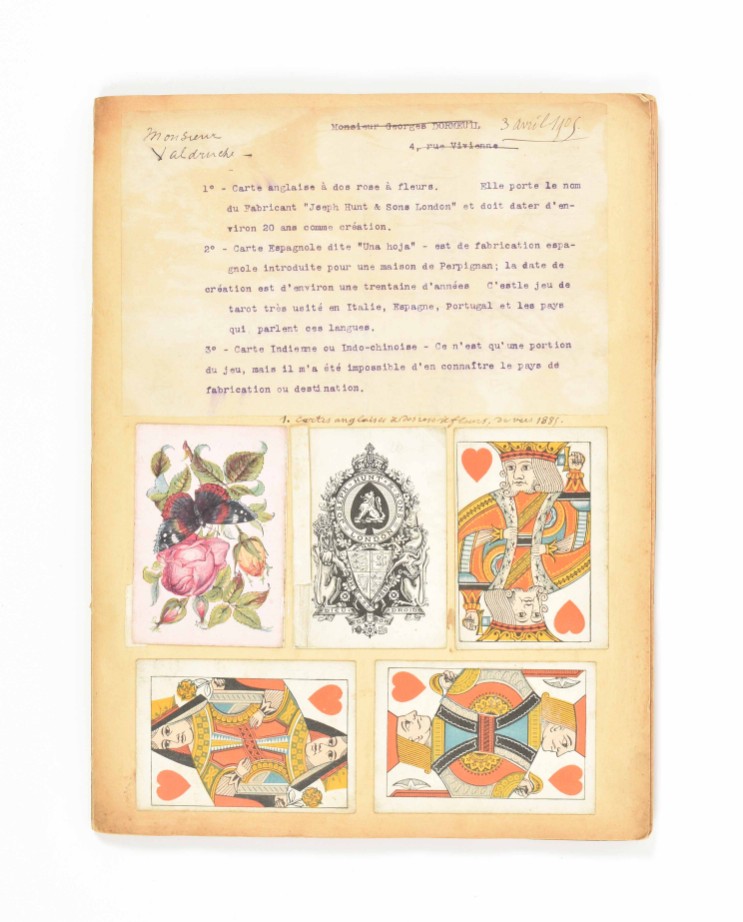 Monsieur
Valdruche -
Monsieur Georges DORMEUIL
3 avril 1905.
4, rue Vivienne
1° - Carte anglaise à dos rose à fleurs. Elle porte le nom
du Fabricant "Jseph Hunt & Sons London" et doit dater d'en-
viron 20 ans comme création.
2° - Carte Espagnole dite "Una hoja" - est de fabrication espa-
gnole introduite pour une maison de Perpignan; la date de
création est d'environ une trentaine d'années C'estle jeu de
tarot très usité en Italie, Espagne, Portugal et les pays
qui parlent ces langues.
3° - Carte Indienne ou Indo-chinoise - Ce n'est qu'une portion
du jeu, mais il m'a été impossible d'en connaître le pays de
fabrication ou destination.
1. Cartes anglaises à dos rose à fleurs, 1885.
JOSEPH HUNT & SONS
LONDON